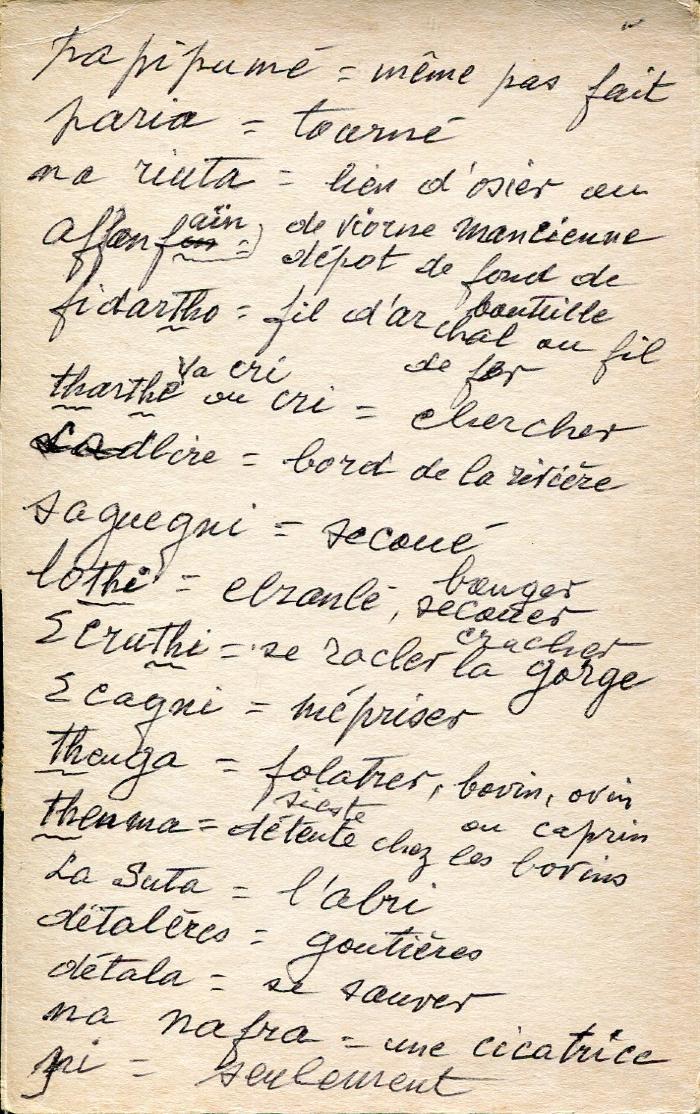 papipumé = même pas fait
paria = tourné
na riuta = lien d'osier ou
de viorne mancienne
affanfaïn = dépôt de fond de
bouteille
fidartho = fil d'archal ou fil
de fer
Va cri
tharthé ou cri = chercher
dbire = bord de la rivière
saguegni = secoué
bouger
lothi = ebranlé, secouer
cracher
Ecruthi = se racler la gorge
Ecagni = mépriser
thenga = folatrer, bovin, ovin
ou caprin
sieste
thenma = détente chez les bovins
La Suta = l'abri
détalères = goutières
détala = se sauver
na nafra = une cicatrice
pi = seulement